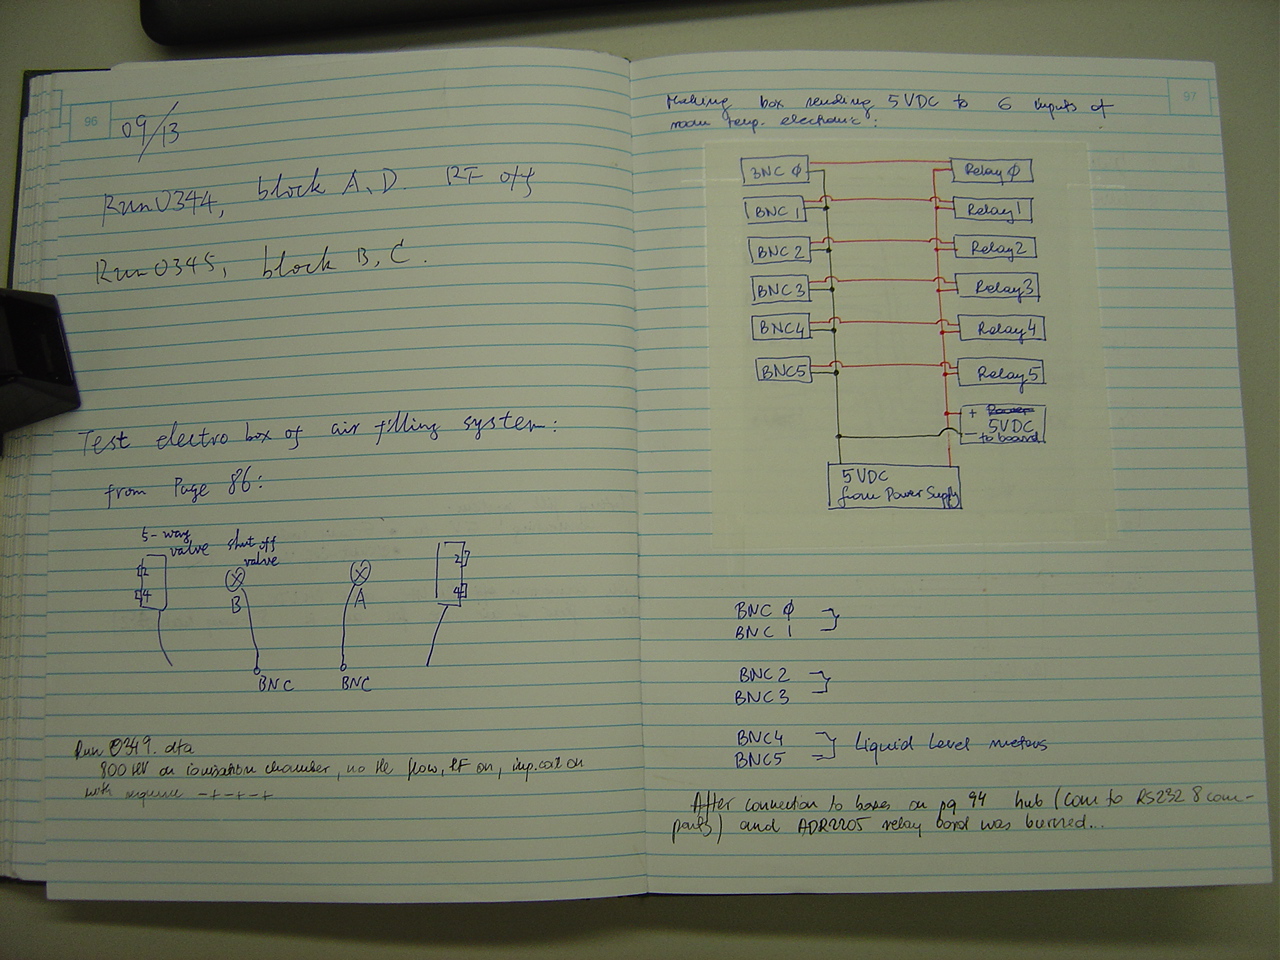 96
09/13
Run0344, block A, D. RF off
Run0345, block B, C.
Test electro box of air filling system:
from Page 86:
5-way
valve
shut off
valve
2
4
B
A
2
4
BNC
BNC
Run 0349. dta
800 HV on ionisation chamber, no He flow, RF on, imp. coil on
with sequence -+-+-+
97
Making box sending 5VDC to 6 inputs of
room temp. electronic:
BNC φ
Relay φ
BNC 1
Relay1
BNC 2
Relay2
BNC 3
Relay3
BNC4
Relay4
BNC5
Relay5
+
5VDC
- to board
5 VDC
from Power Supply
BNC φ
BNC 1
BNC 2
BNC 3
BNC4
BNC5
Liquid Level meters
After connection to boxes on pg 94 hub (com to RS232 8 com-
ports) and ADR2205 relay bord was burned...